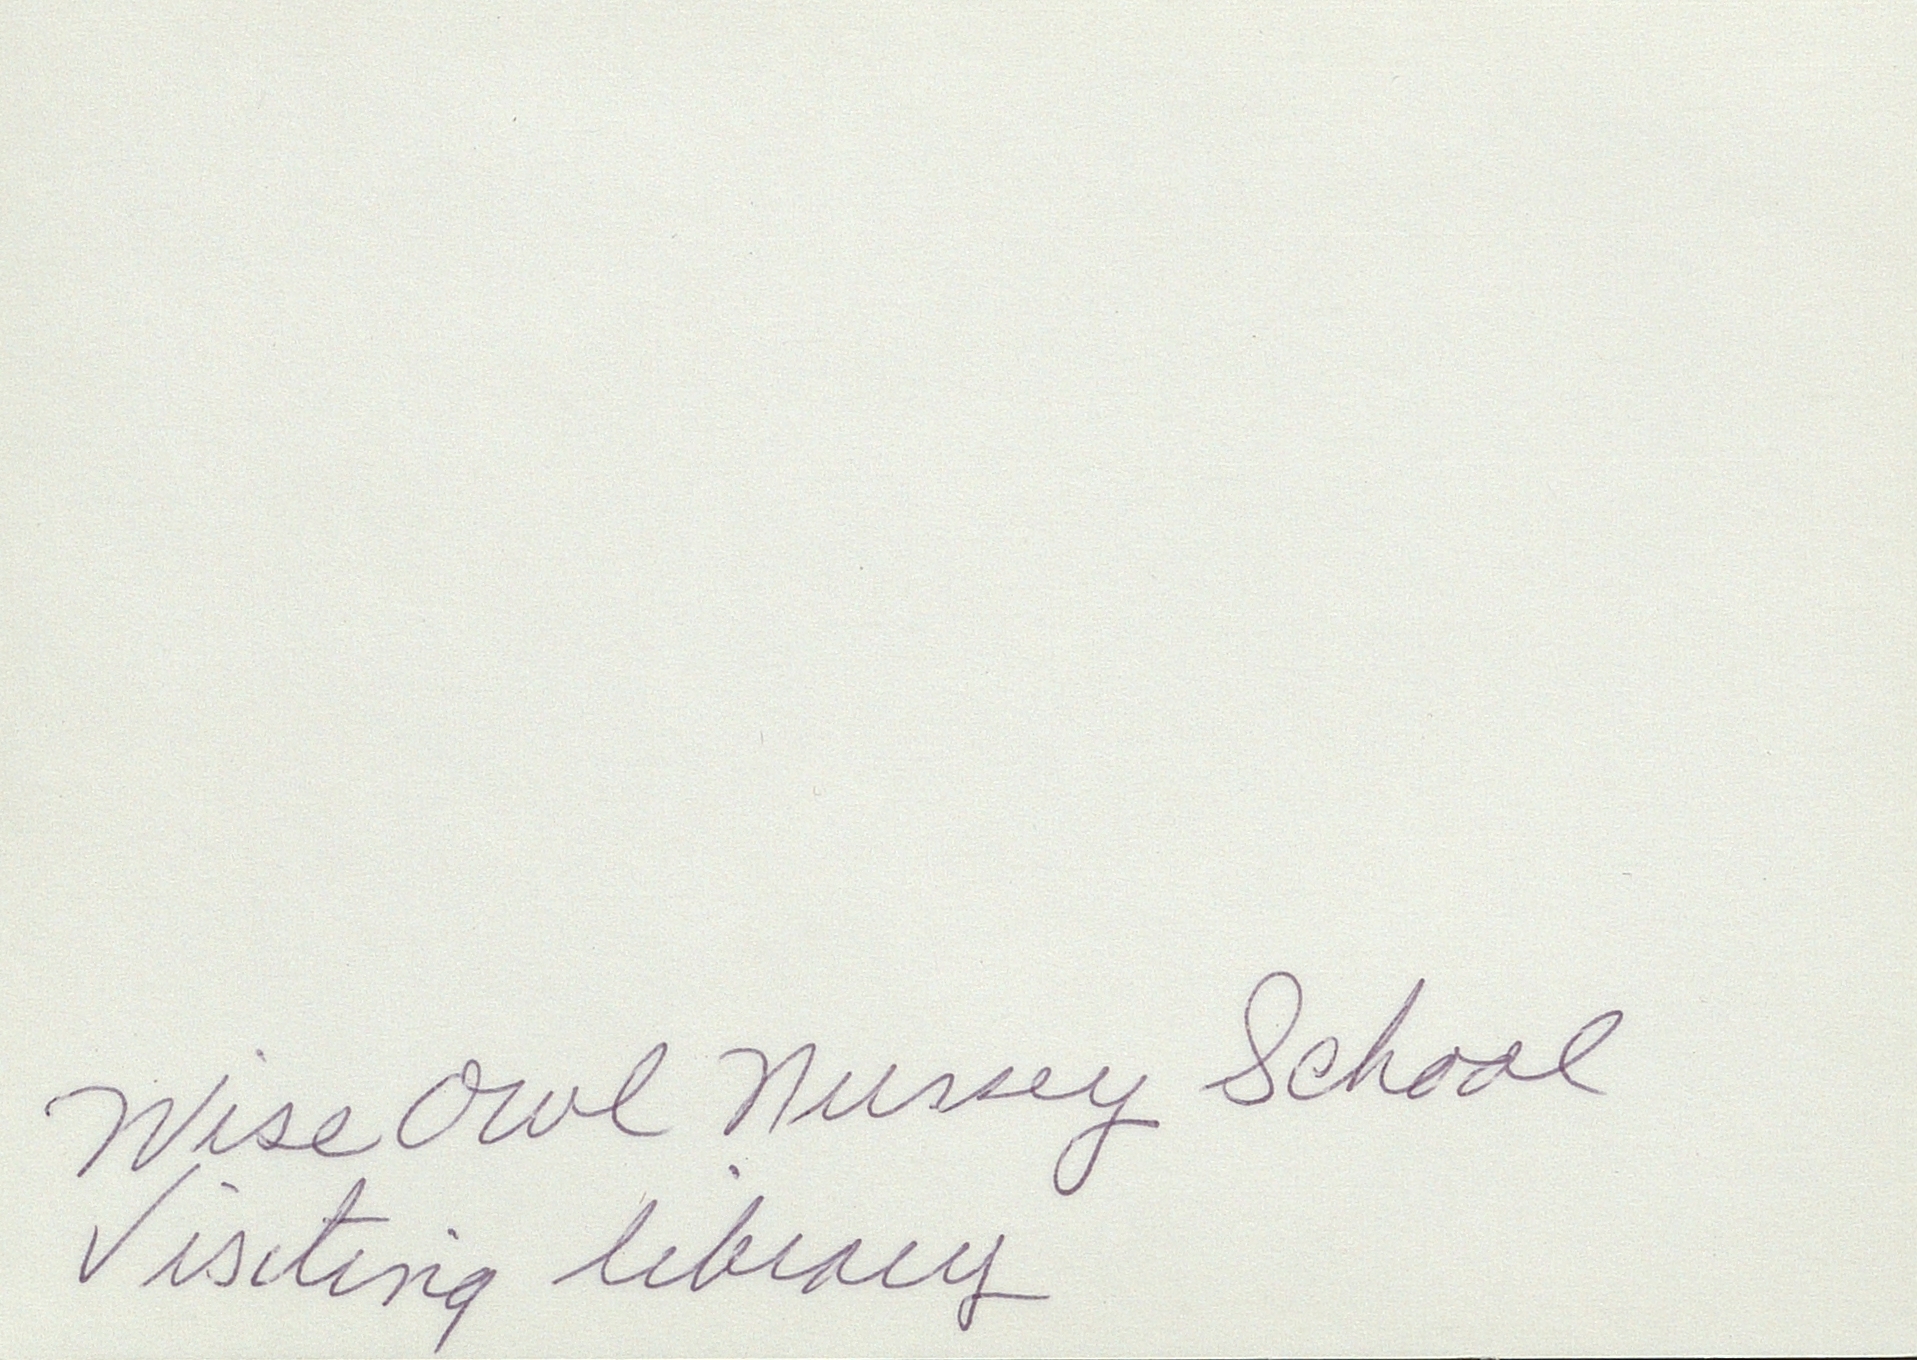 Wise Owl Nursey School
Visiting library